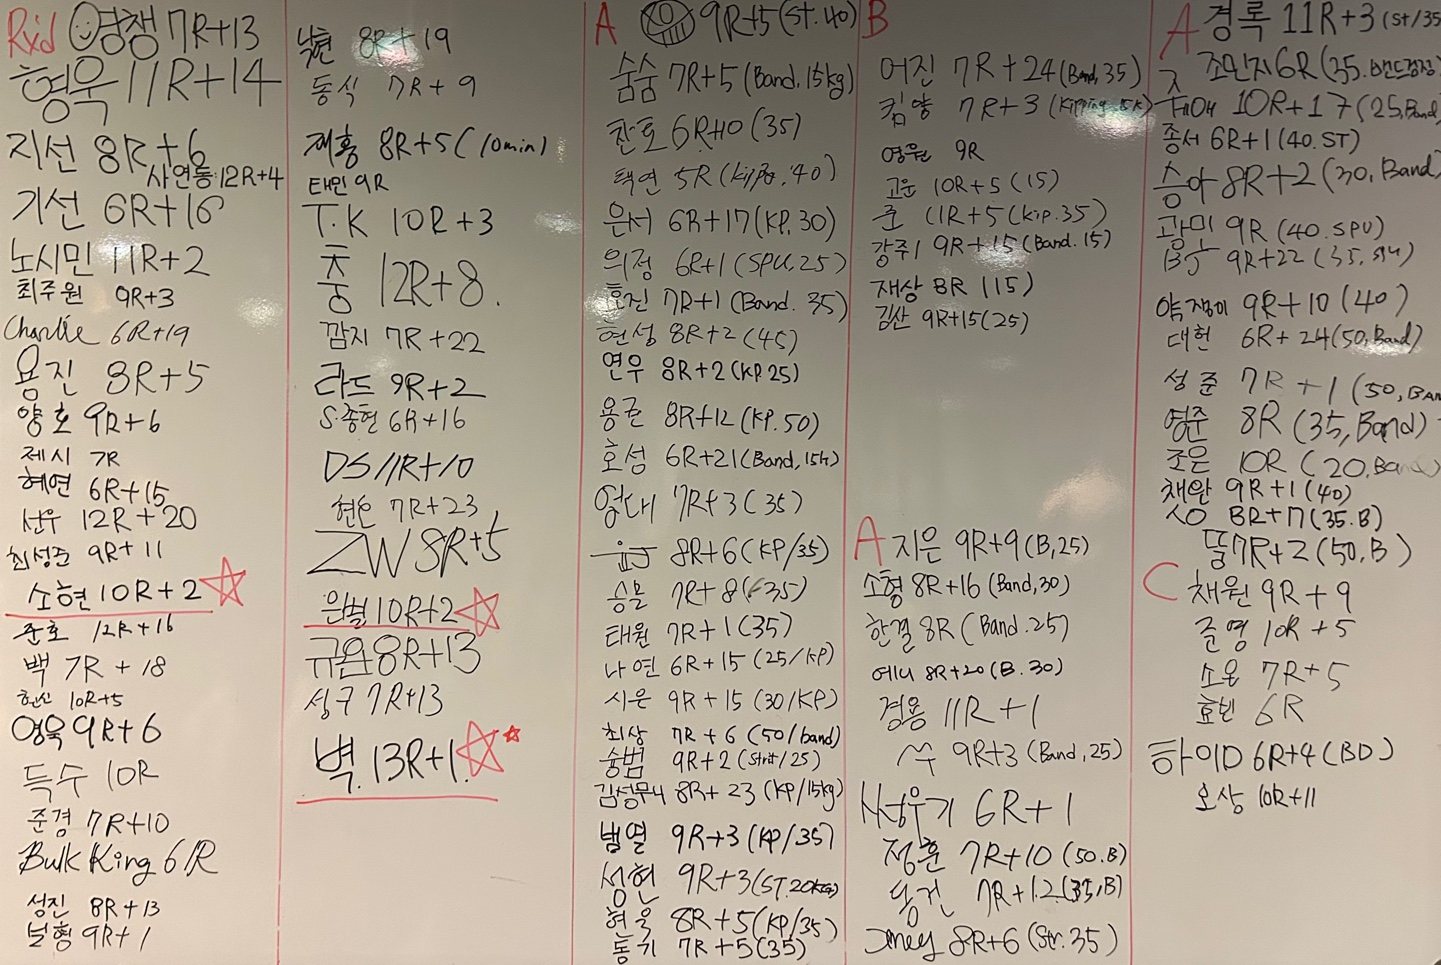 Rxd 영쟁 7R+13
형욱 11R+14
지선 8R+6
사연동 12R+4
기선 6R+16
노시민 11R+2
최주원 9R+3
Charlie 6R+19
용진 8R+5
양호 9R+6
제시 7R
혜연 6R+15
선우 12R+20
최성준 9R+11
소현 10R+2
준호 12R+16
백 7R+18
헌신 10R+5
영욱 9R+6
득수 10R
준경 7R+10
Bulk King 6R
성진 8R+13
보형 9R+1
낙현 8R+19
동식 7R+9
재홍 8R+5 (10min)
태민 9R
T.K 10R+3
충 12R+8.
깜지 7R+22
라드 9R+2
S.종현 6R+16
DS 11R+10
현은 7R+23
ZW 8R+5
은별 10R+2
규완 8R+13
성구 7R+13
벽. 13R+1.
A XO 9R+5 (ST. 40)
숨숨 7R+5 (Band, 15kg)
찬호 6R+0 (35)
택연 5R (Kipp. 40)
은서 6R+17 (KP. 30)
의정 6R+1 (SPU. 25)
효진 7R+1 (Band. 35)
현성 8R+2 (45)
연우 8R+2 (KP 25)
용근 8R+12 (KP. 50)
호성 6R+21 (Band, 15k)
엄대 7R+3 (35)
8R+6 (KP/35)
승모 7R+8 (35)
태원 7R+1 (35)
나연 6R+15 (25/KP)
시은 9R+15 (30/KP)
최상 7R+6 (50/band)
숭범 9R+2 (Strit/25)
김성무니 8R+23 (KP/15kg)
범열 9R+3 (KP/35)
성현 9R+3 (ST. 20KG)
혀욱 8R+5 (KP/35)
동기 7R+5 (35)
B
어진 7R+24 (Band, 35)
킴양 7R+3 (Kipping. 5K)
영원 9R
고운 10R+5 (15)
준 11R+5 (Kip. 35)
강주1 9R+15 (Band. 15)
재상 8R (15)
김산 9R+15 (25)
A 지은 9R+9 (B, 25)
소형 8R+16 (Band, 30)
한결 8R (Band. 25)
에니 8R+20 (B. 30)
경용 11R+1
9R+3 (Band, 25)
성우기 6R+1
정훈 7R+10 (50.B)
동건 7R+12 (35, B)
8R+6 (Str. 35)
A 경록 11R+3 (St/35
조민지 6R (35.
10R+17 (25, Band
종서 6R+1 (40. ST)
승아 8R+2 (30, Band)
광민 9R (40. SPU)
BJ 9R+22 (35, SPU)
약쟁이 9R+10 (40)
대헌 6R+24 (50, Band)
성준 7R+1 (50, BAN
영준 8R (35, Band)
조은 10R (20. Band)
채완 9R+1 (40)
상 8R+17 (35.B)
뚤 7R+2 (50, B)
C 채원 9R+9
준영 10R+5
소윤 7R+5
효빈 6R
하이D 6R+4 (BD)
오상 10R+11